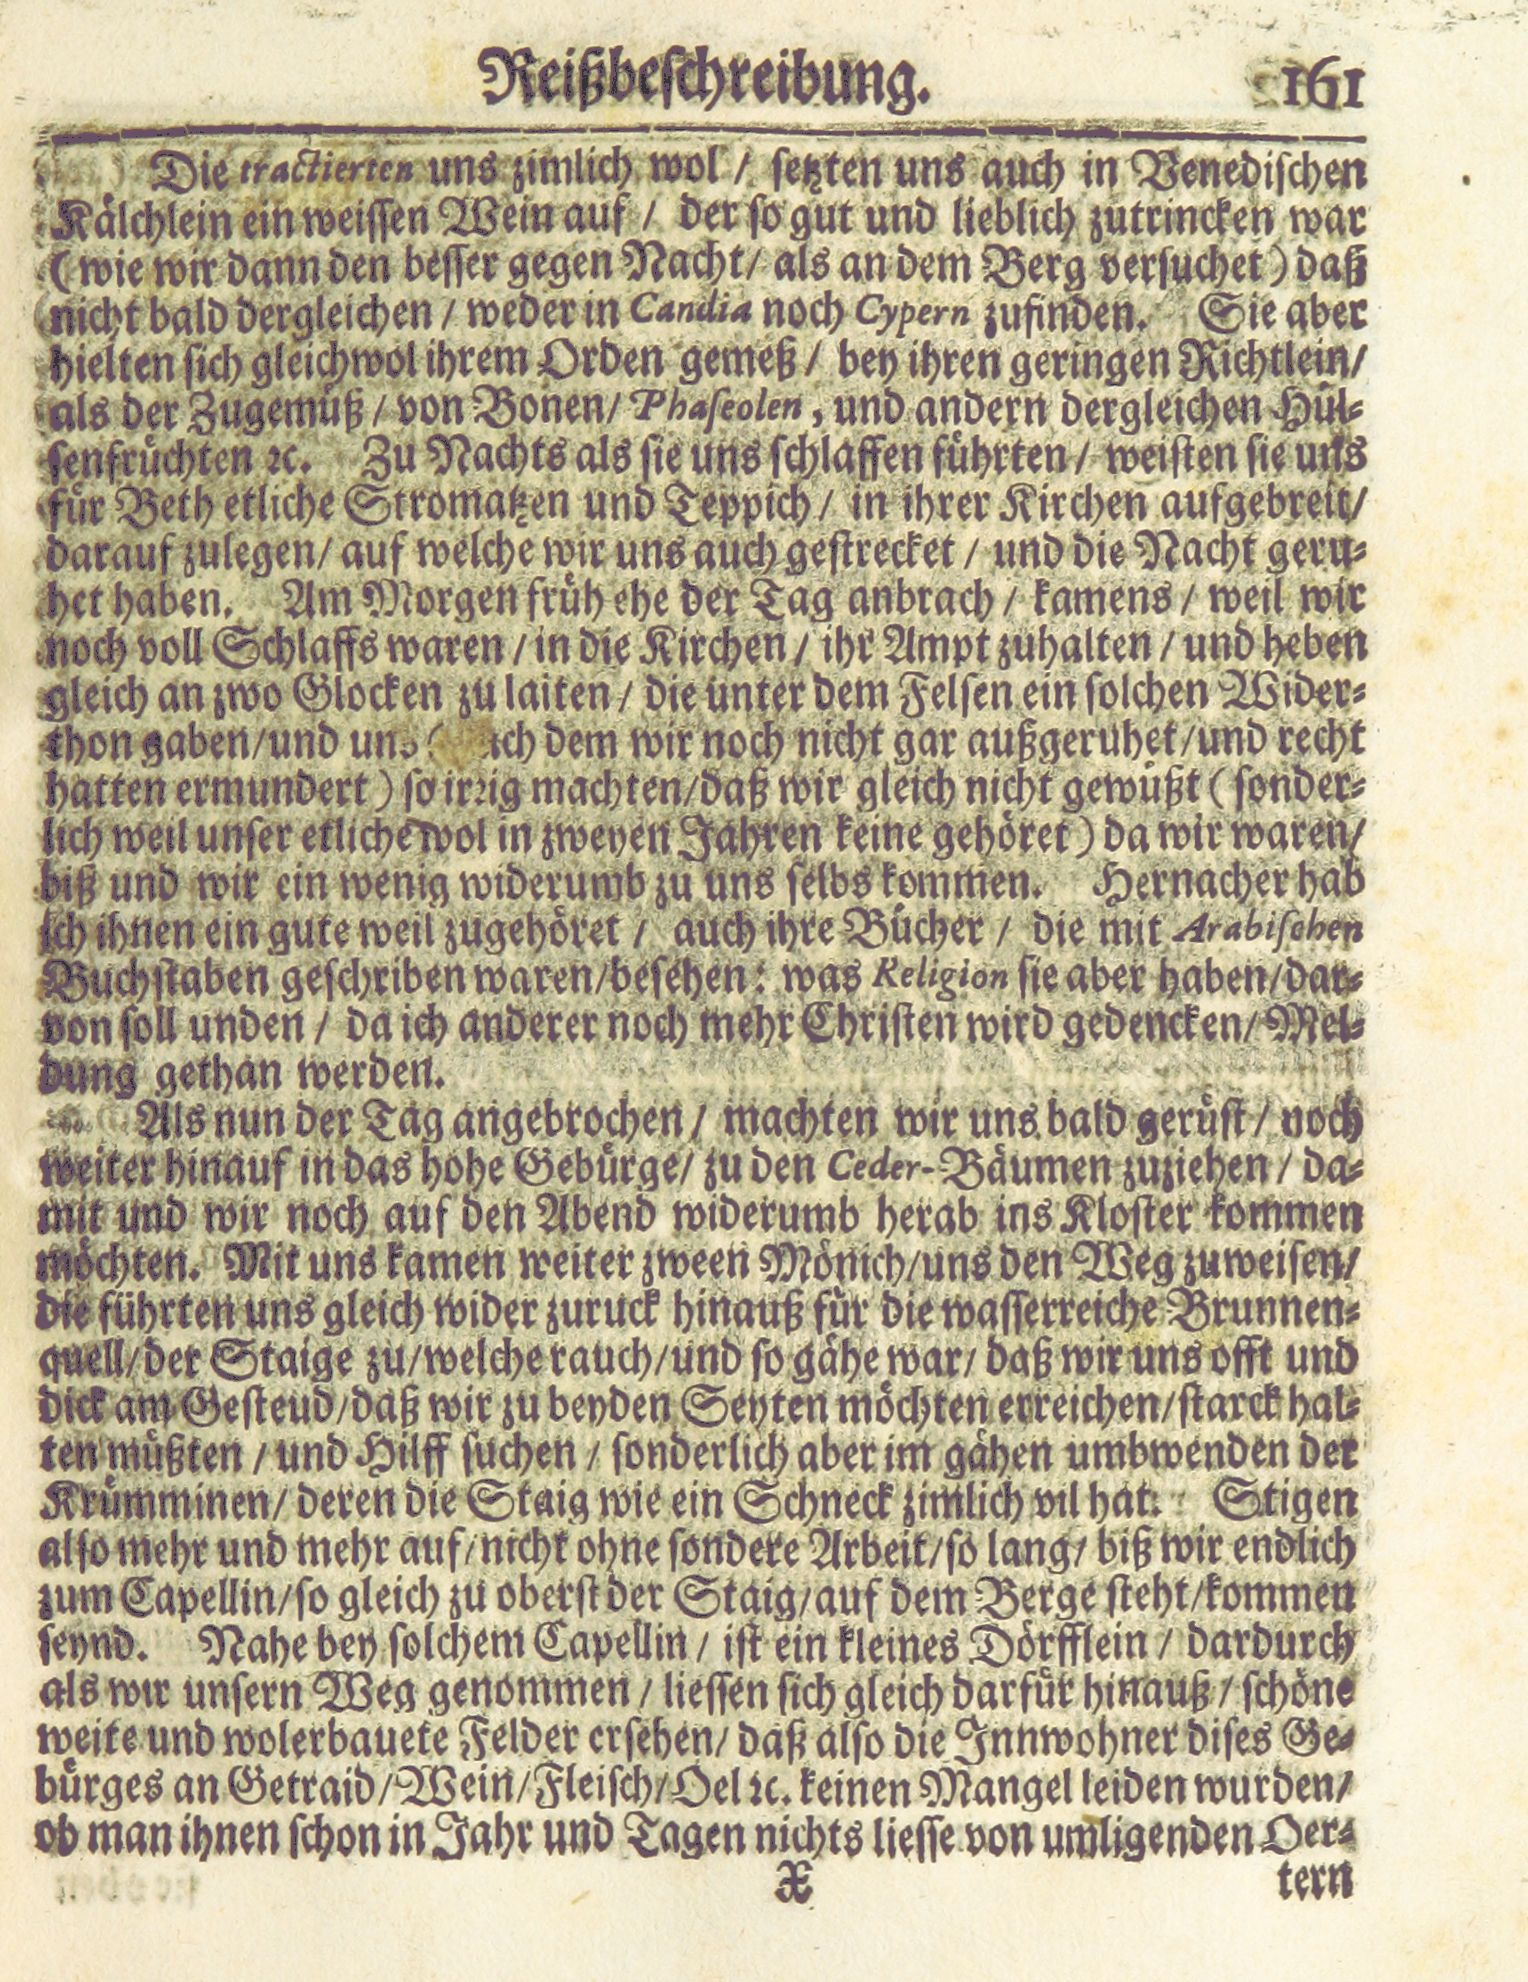 Reißbeschreibung. 161
Die tractierten uns zimlich wol / setzten uns auch in Venedischen
Kälchlein ein weissen Wein auf / der so gut und lieblich zutrincken war
(wie wir dann den besser gegen Nacht/ als an dem Berg versuchet) daß
nicht bald dergleichen / weder in Candia noch Cypern zufinden. Sie aber
hielten sich gleichwol ihrem Orden gemeß / bey ihren geringen Richtlein/
als der Zugemüß / von Bonen/ Phaseolen, und andern dergleichen Hül-
senfrüchten ꝛc. Zu Nachts als sie uns schlaffen führten / weisten sie uns
für Beth etliche Stromatzen und Teppich / in ihrer Kirchen aufgebreit/
darauf zulegen/ auf welche wir uns auch gestrecket / und die Nacht geru-
het haben. Am Morgen früh ehe der Tag anbrach / kamens / weil wir
noch voll Schlaffs waren / in die Kirchen / ihr Ampt zuhalten / und heben
gleich an zwo Glocken zu laiten / die unter dem Felsen ein solchen Wider-
thon gaben/und uns ( dem wir noch nicht gar außgeruhet/und recht
hatten ermundert) so irrig machten/daß wir gleich nicht gewüßt (sonder-
lich weil unser etliche wol in zweyen Jahren keine gehöret) da wir waren/
biß und wir ein wenig widerumb zu uns selbs kommen. Hernacher hab
ich ihnen ein gute weil zugehöret / auch ihre Bücher / die mit Arabischen
Buchstaben geschriben waren/besehen: was Religion sie aber haben/dar-
von soll unden / da ich anderer noch mehr Christen wird gedencken/ Mel-
dung gethan werden.
Als nun der Tag angebrochen / machten wir uns bald gerüst / noch
weiter hinauf in das hohe Gebürge/ zu den Ceder-Bäumen zuziehen / da-
mit und wir noch auf den Abend widerumb herab ins Kloster kommen
möchten. Mit uns kamen weiter zween Mönich/uns den Weg zuweisen/
die führten uns gleich wider zuruck hinauß für die wasserreiche Brunnen-
quell/der Staige zu/welche rauch/und so gähe war/ daß wir uns offt und
dick am Gesteud/daß wir zu beyden Seyten möchten erreichen/starck hal-
ten müßten / und Hilff suchen / sonderlich aber im gähen umbwenden der
Krümminen/ deren die Staig wie ein Schneck zimlich vil hat. Stigen
also mehr und mehr auf/nicht ohne sondere Arbeit/so lang/ biß wir endlich
zum Capellin/so gleich zu oberst der Staig/auf dem Berge steht/kommen
seynd. Nahe bey solchem Capellin / ist ein kleines Dörfflein / dardurch
als wir unsern Weg genommen / liessen sich gleich darfür hinauß / schöne
weite und wolerbauete Felder ersehen/ daß also die Innwohner dises Ge-
bürges an Getraid/Wein/Fleisch/Oel ꝛc. keinen Mangel leiden wurden/
ob man ihnen schon in Jahr und Tagen nichts liesse von umligenden Oer-
X tern